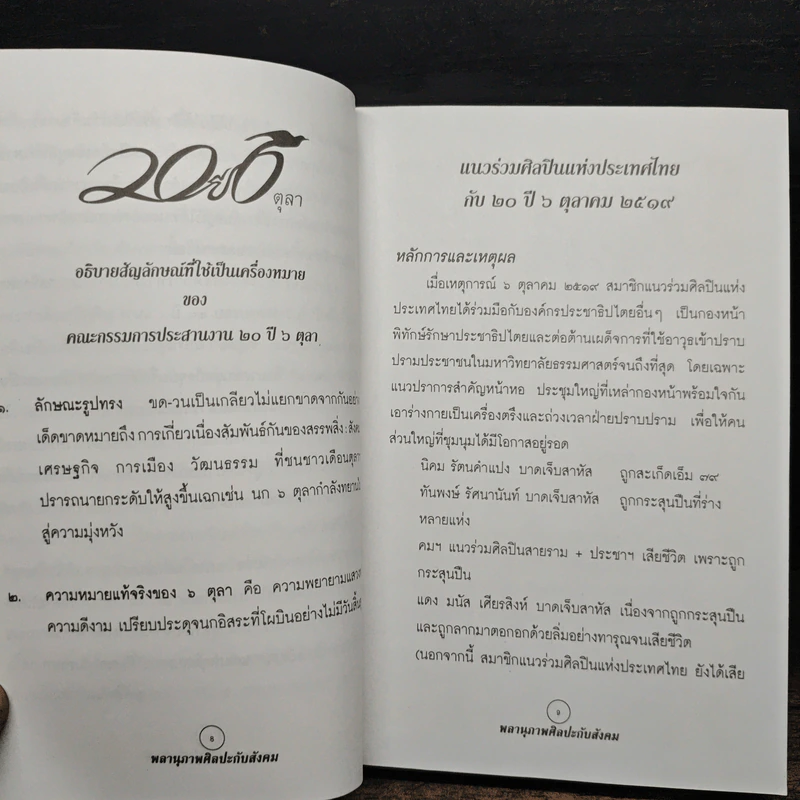 ๒๐ ปี ๖
ตุลา
อธิบายสัญลักษณ์ที่ใช้เป็นเครื่องหมาย
ของ
คณะกรรมการประสานงาน ๒๐ ปี ๖ ตุลา
๑. ลักษณะรูปทรง ขด-วนเป็นเกลียวไม่แยกขาดจากกันอย่าง
เด็ดขาดหมายถึง การเกี่ยวเนื่องสัมพันธ์กันของสรรพสิ่ง : สังคม
เศรษฐกิจ การเมือง วัฒนธรรม ที่ชนชาวเดือนตุลา
ปรารถนายกระดับให้สูงขึ้นเฉกเช่น นก ๖ ตุลากำลังทยาน
สู่ความมุ่งหวัง
๒. ความหมายแท้จริงของ ๖ ตุลา คือ ความพยายามแสวง
ความดีงาม เปรียบประดุจนกอิสระที่โผบินอย่างไม่มีวันสิ้น
8
พลานุภาพศิลปะกับสังคม
แนวร่วมศิลปินแห่งประเทศไทย
กับ ๒๐ ปี ๖ ตุลาคม ๒๕๑๙
หลักการและเหตุผล
เมื่อเหตุการณ์ ๖ ตุลาคม ๒๕๑๙ สมาชิกแนวร่วมศิลปินแห่ง
ประเทศไทยได้ร่วมมือกับองค์กรประชาธิปไตยอื่นๆ เป็นกองหน้า
พิทักษ์รักษาประชาธิปไตยและต่อต้านเผด็จการที่ใช้อาวุธเข้าปราบ
ปรามประชาชนในมหาวิทยาลัยธรรมศาสตร์จนถึงที่สุด โดยเฉพาะ
แนวปราการสำคัญหน้าหอ ประชุมใหญ่ที่เหล่ากองหน้าพร้อมใจกัน
เอาร่างกายเป็นเครื่องตรึงและถ่วงเวลาฝ่ายปราบปราม เพื่อให้คน
ส่วนใหญ่ที่ชุมนุมได้มีโอกาสอยู่รอด
นิคม รัตนคำแปง บาดเจ็บสาหัส ถูกสะเก็ดเอ็ม ๗๙
ทันพงษ์ รัศนานันท์ บาดเจ็บสาหัส ถูกกระสุนปืนที่ร่าง
หลายแห่ง
คมฯ แนวร่วมศิลปินสายราม + ประชาฯ เสียชีวิต เพราะถูก
กระสุนปืน
แดง มนัส เศียรสิงห์ บาดเจ็บสาหัส เนื่องจากถูกกระสุนปืน
และถูกลากมาตอกอกด้วยลิ่มอย่างทารุณจนเสียชีวิต
(นอกจากนี้ สมาชิกแนวร่วมศิลปินแห่งประเทศไทย ยังได้เสีย
9
พลานุภาพศิลปะกับสังคม